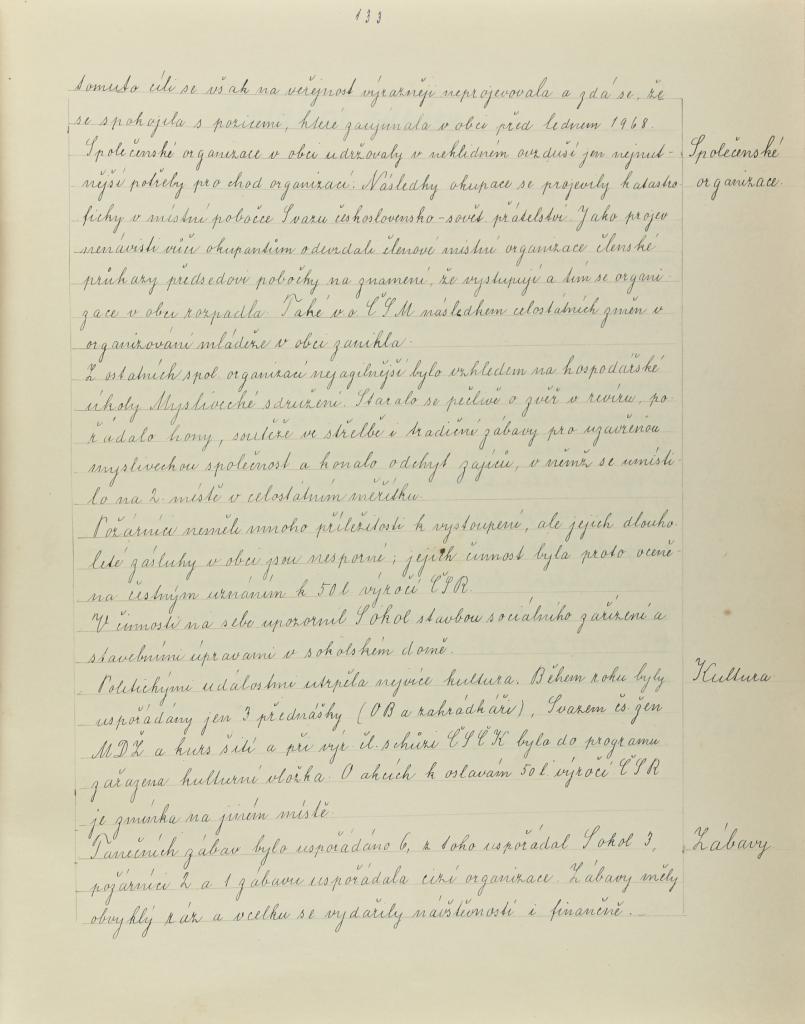 133
tomuto cíli se však na veřejnost výrazněji neprojevovala a zdá se, že
se spokojila s pozicemi, které zaujímala v obci před lednem 1968.
Společenské organizace v obci udržovaly v neklidném ovzduší jen nejnut-
nější potřeby pro chod organizací. Následky okupace se projevily katastro-
ficky v místní pobočce Svazu československo-sovět. přátelství. Jako projev
nenávisti vůči okupantům odevzdali členové místní organizace členské
průkazy předsedovi pobočky na znamení, že vystupují a tím se organi-
zace v obci rozpadla. Také v.o. ČSM následkem celostátních změn v
organizování mládeže v obci zanikla.
Společenské
organizace.
Z ostatních spol. organizací nejagilnější bylo vzhledem na hospodářské
úkoly Myslivecké sdružení. Staralo se pečlivě o zvěř v revíru, po-
řádalo hony, soutěže ve střelbě i tradiční zábavy pro uzavřenou
mysliveckou společnost a konalo odchyt zajíců, v němž se umísti-
lo na 2. místě v celostátním měřítku.
Požárníci neměli mnoho příležitosti k vystoupení, ale jejich dlouho-
leté zásluhy v obci jsou nesporné; jejich činnost byla proto oceně-
na čestným uznáním k 50 l. výročí ČSR.
V činnosti na sebe upozornil Sokol stavbou sociálního zařízení a
stavebními úpravami v sokolském domě.
Politickými událostmi utrpěla nejvíce kultura. Během roku byly
uspořádány jen 3 přednášky (OB a zahrádkáři), Svazem čs. žen
MDŽ a kurs šití a při výr. čl. schůzi ČSČK byla do programu
zařazena kulturní vložka. O akcích k oslavám 50 l. výročí ČSR
je zmínka na jiném místě.
Kultura
Tanečních zábav bylo uspořádáno 6, z toho uspořádal Sokol 3,
požárníci 2 a 1 zábavu uspořádala cizí organizace. Zábavy měly
obvyklý ráz a vcelku se vydařily návštěvností i finančně.
Zábavy